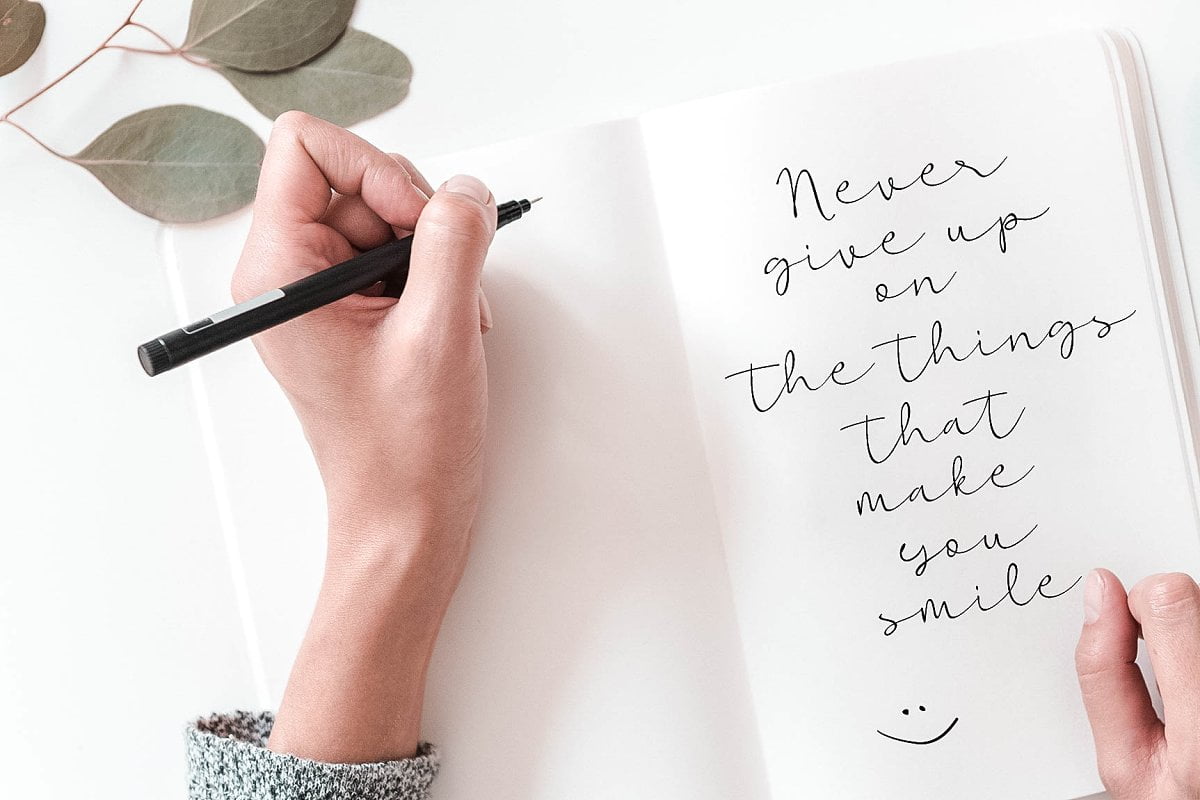 Never
give up
on
the things
that
make
you
smile